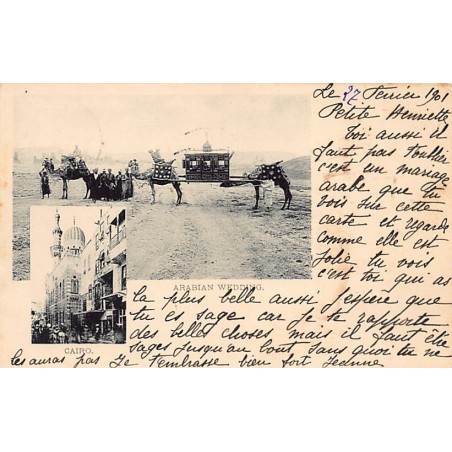 Le 27 Fevrier 1901
Petite Henriette
toi aussi il
faut pas t'oublier
c'est un mariage
arabe que tu
vois sur cette
carte et regarde
comme elle est
jolie tu vois
c'est toi qui as
ARABIAN WEDDING.
la plus belle aussi j'espère que
tu es sage car je te rapporte
des belles choses, mais il faut être
sages jusqu'au bout, sans quoi tu ne
CAIRO.
les auras pas Je t'embrasse bien fort Jeanne